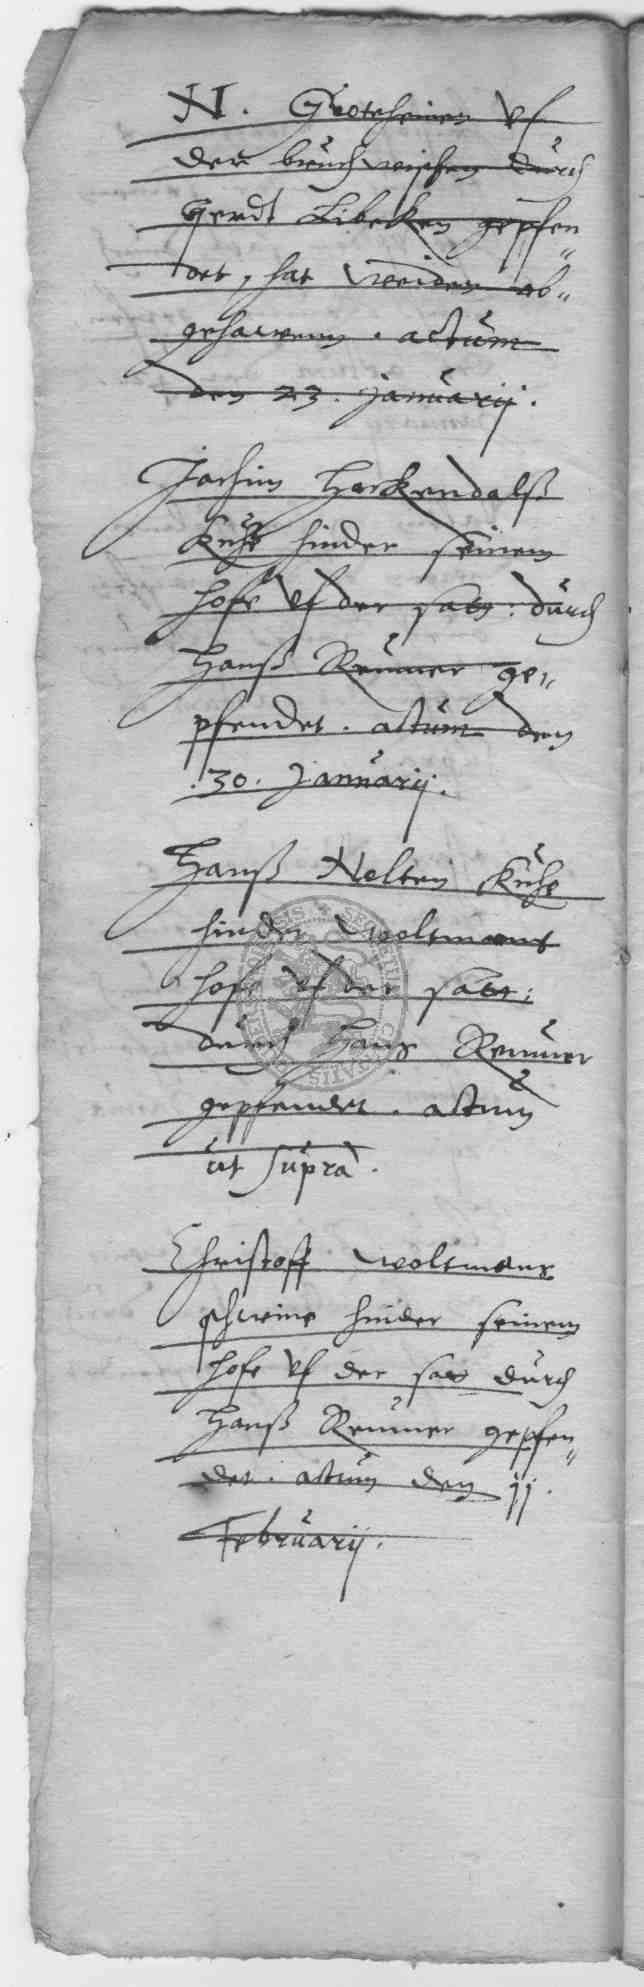 N. Grotheinen uf
der bruchwischen durch
Gerdt Libeken gepfen„
det, hat weiden ab„
gehawenn. actum
den 23. januarij.
Jochim Harkendalß
Kuhe hinder seinem
hofe uf der satt: durch
Hanß Remmer ge„
pfendet. actum den
.30. Januarij.
Hanß Nelten Kuhe
hinder woltmans
hofe uf der satt:
durch Hans Remmer
gepfendet. actum
ut supra.
Christoff woltmans
schweine hinder seinem
hofe uf der satt durch
Hanß Remmer gepfen„
det. actum den jj.
Februarij.